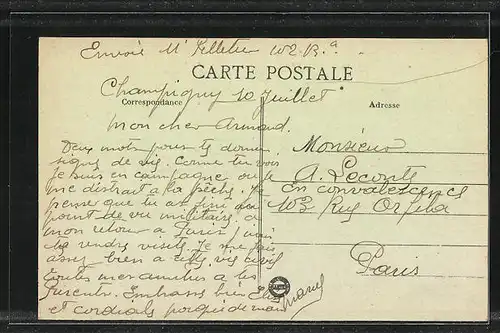 Envoie Mr Pelletier
CARTE POSTALE
Champigny 10 Juillet
Correspondance
Adresse
Mon cher Armand.
Deux mots pour te donner
signes de vie. Comme tu vois
je suis en campagne ou je
me distrait a la pêche. Je
pense que tu as fini au
point de vue militaire, a
mon retour a Paris j'irai
te rendre visite. Je me fais
assez bien a cette vie civil
toutes mes amitiés a tes
Parents. Embrasse bien
et cordiale poignée de main
Marcel
Monsieur
A. Leconte
en convalescence
Rue Orfila
Paris